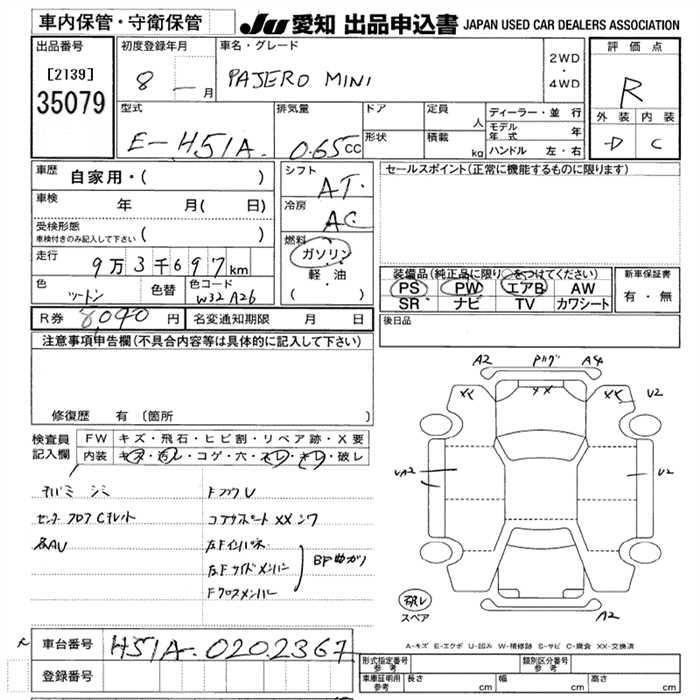 車内保管・守衛保管
JU 愛知 出品申込書 JAPAN USED CAR DEALERS ASSOCIATION
出品番号
[2139]
35079
初度登録年月
8 — 月
車名・グレード
PAJERO MINI
2WD
・
4WD
評価点
R
外装 内装
D C
型式
E-H51A.
排気量
0.65 CC
ドア
形状
定員
人
積載
kg
ディーラー・並 行
モデル年式 年
ハンドル 左・右
車歴 自家用・( )
車検 年 月( 日)
受検形態
車検付きのみ記入して下さい ( )
走行 9万3千697km
色 ツートン
色替
色コード
W32 A26
シフト
AT.
冷房
AC
燃料
ガソリン
軽 油
( ・ )
セールスポイント(正常に機能するものに限ります)
装備品(純正品に限り○をつけてください)
PS PW エアB AW
SR ナビ TV カワシート
新車保証書
有・無
後日品
R券 8,090 円
名変通知期限 月 日
注意事項申告欄(不具合内容等は具体的に記入して下さい)
修復歴 有 (箇所 )
検査員記入欄
FW キズ・飛石・ヒビ割・リペア跡・X要
内装 キズ・汚レ・コゲ・穴・スレ・キレ・破レ
シミ
センターフロアCチレット
各AU
コアサポートXXシワ
左Fインパネ
左Fサイドメンバー
Fクロスメンバー
BP曲ガリ
A2 A4
XX XX XX U2
UA2 U2
破レ
スペア
A2
A-キズ E-エクボ U-凹み W-補修跡 S-サビ C-腐食 XX-交換済
車台番号 H51A-0202367
登録番号
形式指定番号
参考
類別区分番号
参考
車庫証明用
参考
長さ cm
幅 cm
高さ cm